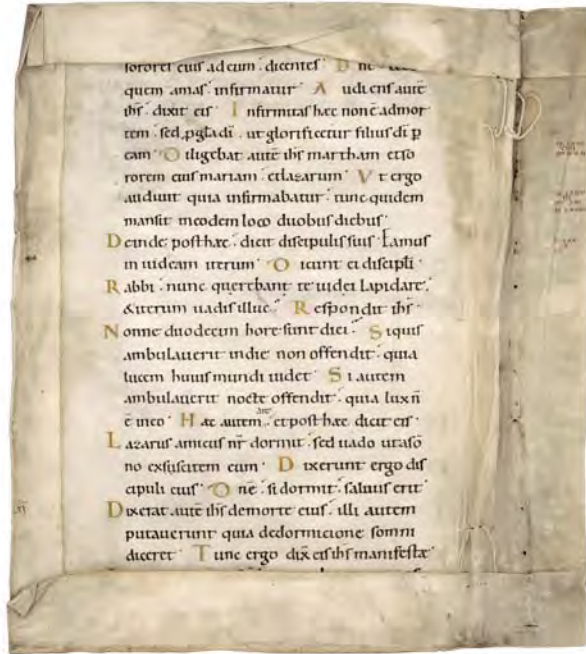 sorores eius ad eum . dicentes D ne
quem amas infirmatur A udiens autē
ihs . dixit eis I nfirmitas hæc non ē ad mor
tem . sed p gl̄a dī . ut glorificetur filius dī p
eam O iligebat autē ihs martham et so
rorem eius mariam . et lazarum V t ergo
audiuit quia infirmabatur . tunc quidem
mansit in eodem loco duobus diebus
D einde post hæc . dicit discipulis suis . Eamus
in iudeam iterum O icunt ei discipl̄i
R abbi . nunc querebant te iudei lapidare .
& iterum uadis illuc R espondit ihs
N onne duodecim hore sunt diei S iquis
ambulauerit in die non offendit . quia
lucem huius mundi uidet S i autem
ambulauerit nocte offendit . quia lux n̄
ē in eo H æc autem . et post hæc dicit eis
L azarus amicus nr̄ dormit . sed uado ut a sō
no exsuscitem eum D ixerunt ergo dis
cipuli eius O nē . si dormit . saluus erit
D ixerat autē ihs de morte eius . illi autem
putauerunt quia de dormicione somni
diceret T unc ergo dix̄ eis ihs manifestæ